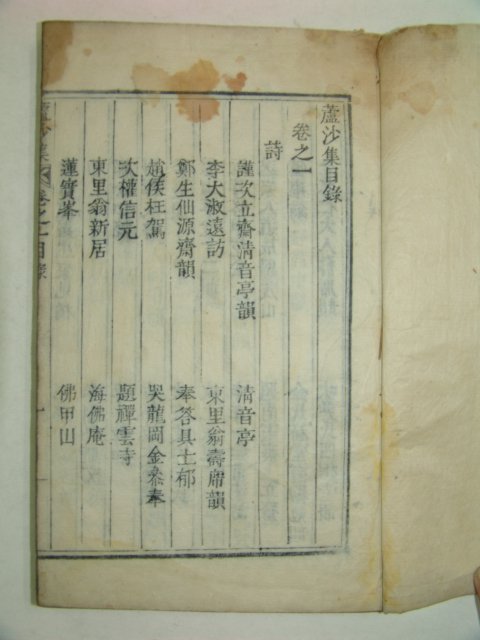 蘆沙集目錄
卷之一
詩
謹次立齋淸音亭韻 淸音亭
李大淑遠訪 東里翁壽席韻
鄭生仙源齋韻 奉答具士郁
趙侯枉駕 哭龍岡金泰奉
次權信元 題禪雲寺
東里翁新居 海佛庵
蓮寶峯 佛甲山
蘆沙集 卷之一 目錄 一